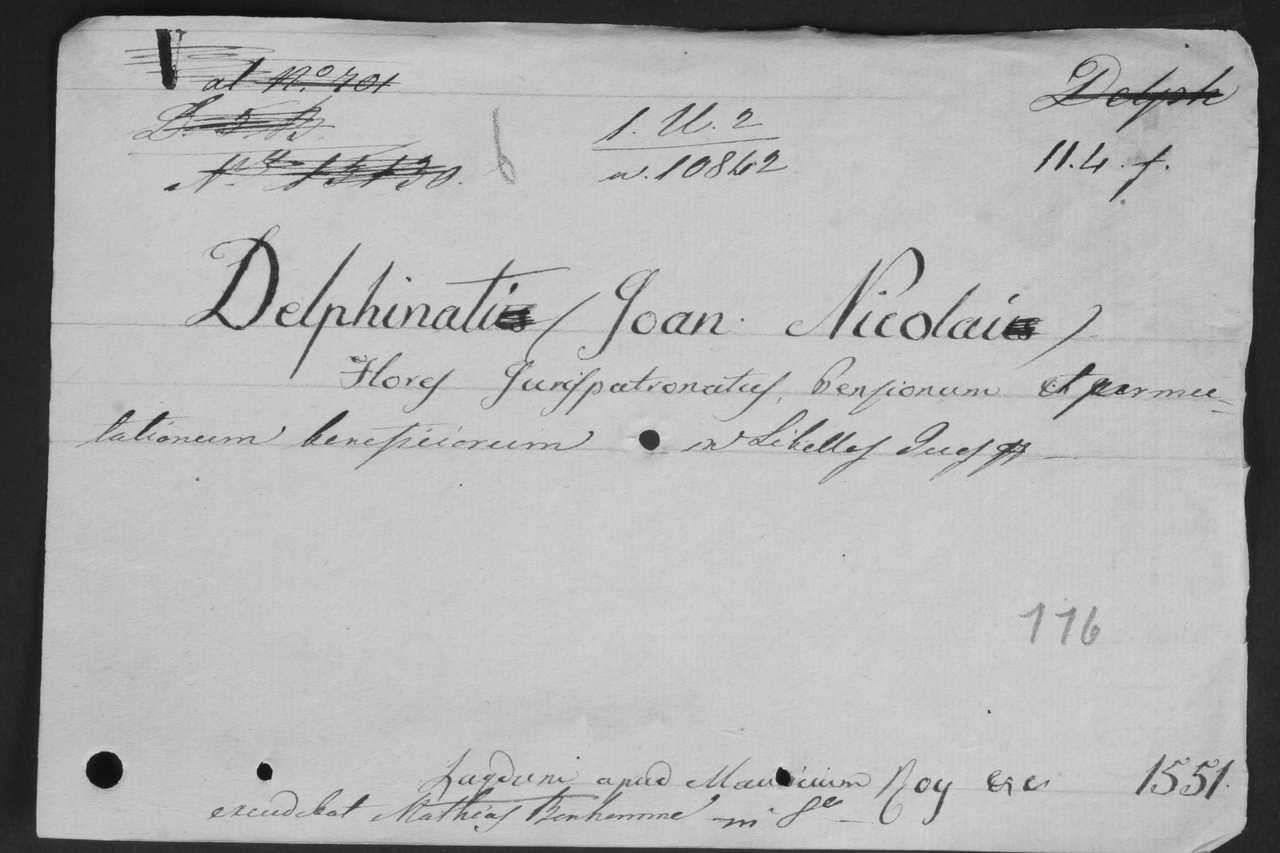 al Nº 701
Delph
D. 5 B.
1. U. 2
6
Nº 15130.
n. 10842
11. 4. f.
Delphinatis (Joan. Nicolai)
Flores Jurispatronatus, pensionum et permu-
tationum beneficiorum in Libellos Duos
116
Lugduni apud Mauricium Roy 1551.
excudebat Mathias Bonhomme in 8º